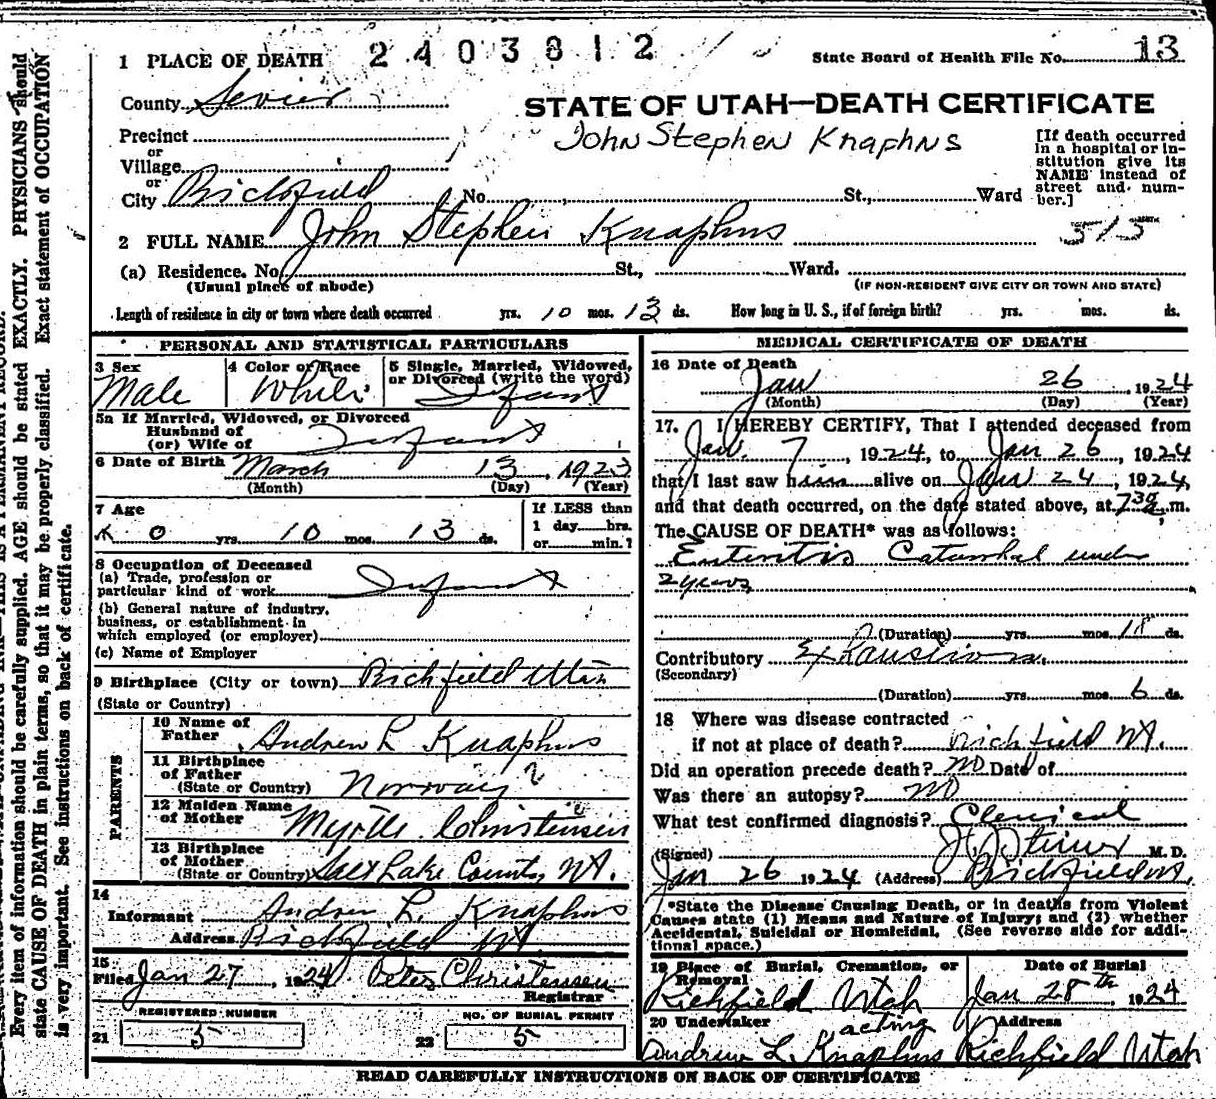 1 PLACE OF DEATH 2403812
State Board of Health File No. 13
County Sevier
STATE OF UTAH—DEATH CERTIFICATE
Precinct
John Stephen Knaphus
or
Village
or
City Richfield No. St., Ward
[If death occurred
in a hospital or in-
stitution give its
NAME instead of
street and num-
ber.]
2 FULL NAME John Stephen Knaphus
515
(a) Residence. No. St., Ward.
(Usual place of abode)
(IF NON-RESIDENT GIVE CITY OR TOWN AND STATE)
Length of residence in city or town where death occurred yrs. 10 mos. 13 ds. How long in U. S., if of foreign birth? yrs. mos. ds.
PERSONAL AND STATISTICAL PARTICULARS
3 Sex
Male
4 Color or Race
White
5 Single, Married, Widowed,
or Divorced (write the word)
Infant
5a If Married, Widowed, or Divorced
Husband of
(or) Wife of Infant
6 Date of Birth March 13, 1923
(Month) (Day) (Year)
7 Age
0 yrs. 10 mos. 13 ds.
If LESS than
1 day hrs.
or min.?
8 Occupation of Deceased
(a) Trade, profession or
particular kind of work Infant
(b) General nature of industry,
business, or establishment in
which employed (or employer)
(c) Name of Employer
9 Birthplace (City or town) Richfield Utah
(State or Country)
PARENTS
10 Name of
Father Andrew L Knaphus
11 Birthplace
of Father
(State or Country) Norway ?
12 Maiden Name
of Mother Myrtle Christensen
13 Birthplace
of Mother
(State or Country) Salt Lake County, Ut.
14
Informant Andrew L. Knaphus
Address Richfield Ut
15
Filed Jan 27, 1924 Peter Christensen
Registrar
REGISTERED NUMBER
21 5
NO. OF BURIAL PERMIT
22 5
MEDICAL CERTIFICATE OF DEATH
16 Date of Death
Jan 26 1924
(Month) (Day) (Year)
17. I HEREBY CERTIFY, That I attended deceased from
Jan. 7, 1924, to Jan 26, 1924
that I last saw him alive on Jan 24, 1924,
and that death occurred, on the date stated above, at 7 30 a.m.
The CAUSE OF DEATH* was as follows:
Enteritis Catarrhal under
2 years
(Duration) yrs. mos. 18 ds.
Contributory Exhaustion
(Secondary)
(Duration) yrs. mos. 6 ds.
18 Where was disease contracted
if not at place of death? Richfield Ut.
Did an operation precede death? no Date of
Was there an autopsy? no
What test confirmed diagnosis? Clinical
(Signed) M. D.
Jan 26 1924 (Address) Richfield Ut.
*State the Disease Causing Death, or in deaths from Violent
Causes state (1) Means and Nature of Injury; and (2) whether
Accidental, Suicidal or Homicidal. (See reverse side for addi-
tional space.)
19 Place of Burial, Cremation, or
Removal
Richfield Utah
Date of Burial
Jan 28th, 1924
20 Undertaker acting
Andrew L. Knaphus
Address
Richfield Utah
READ CAREFULLY INSTRUCTIONS ON BACK OF CERTIFICATE
Every item of information should be carefully supplied. AGE should be stated EXACTLY. PHYSICIANS should
state CAUSE OF DEATH in plain terms, so that it may be properly classified. Exact statement of OCCUPATION
is very important. See instructions on back of certificate.